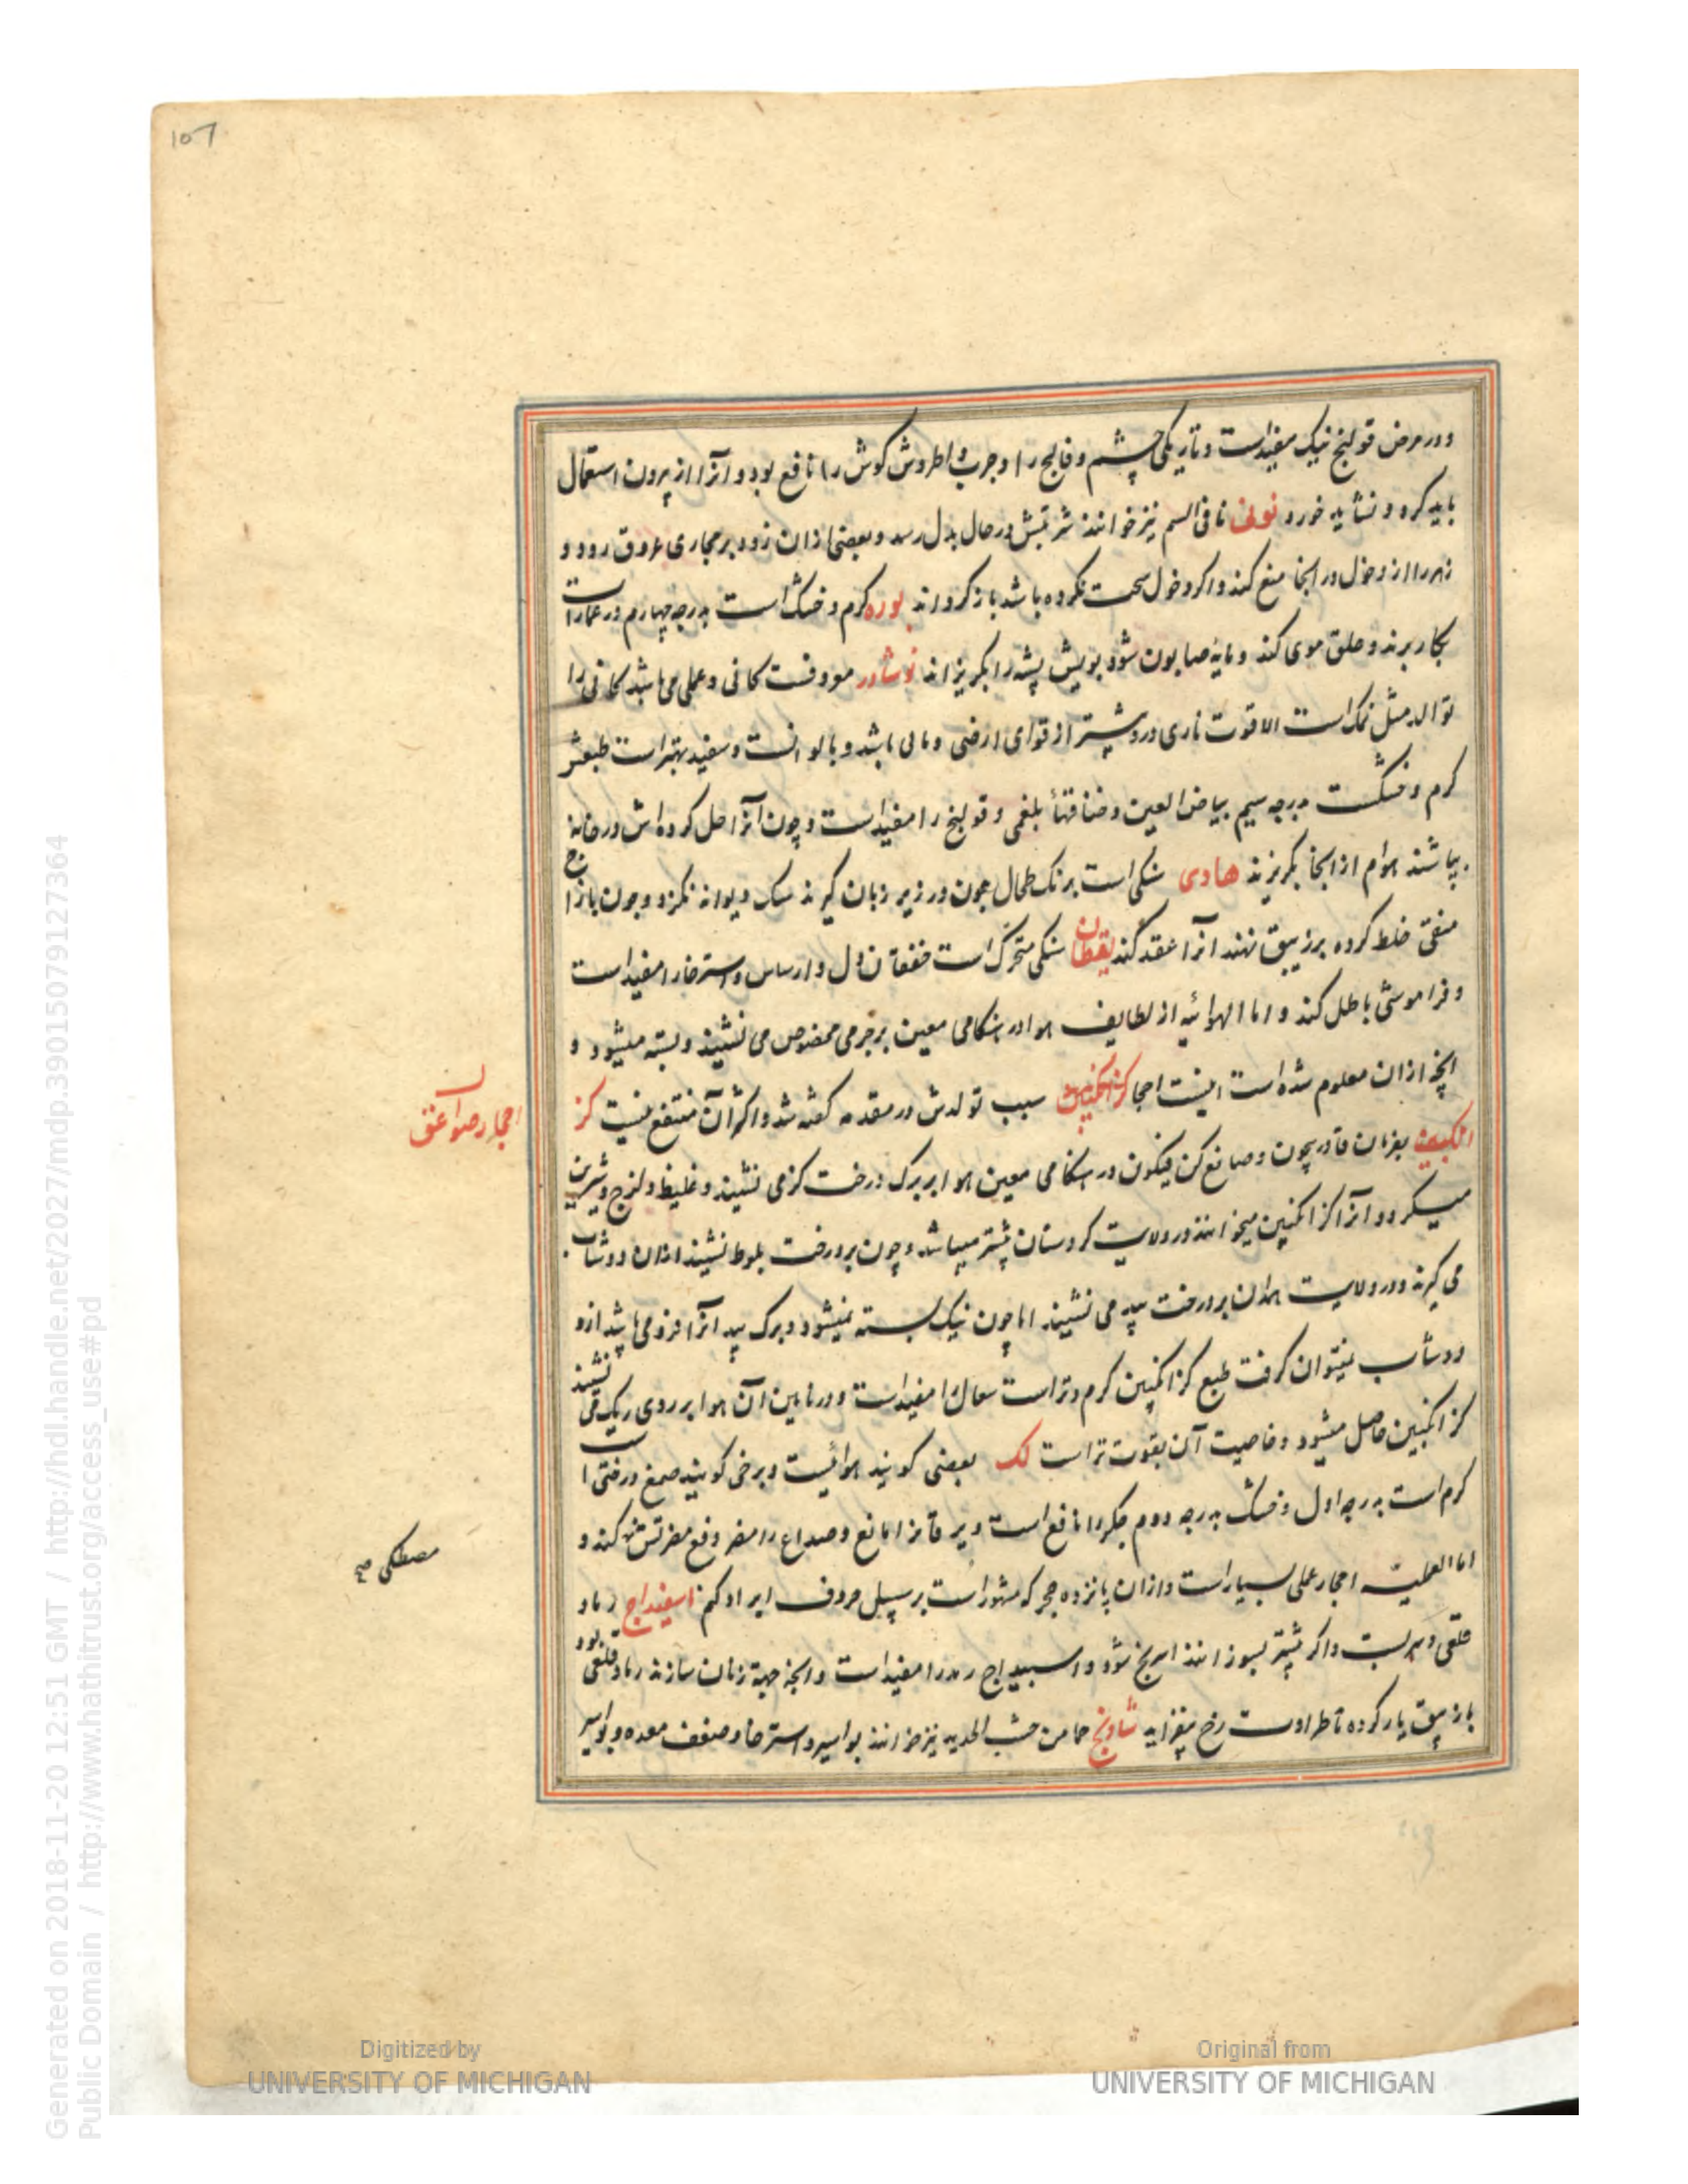 107
ودر مرض قولنج نیک مفیداست وتاریکی چشم وفالج را وجرب واطروش کوش را نافع بود وآنرا از بیرون استعمال
باید کره و نشاید خورد نوفی نافی السم نیز خوانند شربتش درحال بدل رسد وبعضی ازان زود برمجاری عروق رود و
زهر را از دخول در انجا منع کند واکر دخول سخت نکرده باشد باز کرداند بوره کرم وخشک است بدرجه چهارم در عمارات
بکار برند وحلق موی کند و مایه صابون شود بویش پشه را بکریزاند نوشادر معروفست کانی وعملی می باشد کانی را
توالد مثل نمک است الا قوت ناری درو بیشتر از قوای ارضی و مائی باشد و بالوانست وسفید بهتر است طبعش
کرم وخشکست بدرجه سیم بیاض العین وخنا قتهاء بلغمی وقولنج را مفیداست وچون آنرا حل کرده اش درخانه
بپاشند هوام از انجا بکریزند هادی سنکی است برنک طحال چون در زیر زبان کیرند سک دیوانه نکزد وچون بازاج
منقی خلط کرده برزیبق نهند انرا عقد کند یقظان سنکی متحرک است خفقان دل وارساس واسترخا را مفیداست
وفراموشی باطل کند واما الهوائیه از لطایف هوا در هنکامی معین برجرمی مخصوص می نشیند وبسته میشود و
انچه ازان معلوم شده است اینست احجا کزانکبین سبب تولدش در مقدمه کفته شد واکثر آن منتفع نیست کز
احجار صواعق
انکبین بفرمان قادر بیچون وصانع کن فیکون در هنکامی معین هوا بر برک درخت کز می نشیند وغلیظ ولزج وشیرین
میکردد وآنرا کزانکبین میخوانند ودر ولایت کردستان بیشتر میباشد وچون بر درخت بلوط نشیند ازان دوشاب
می کیرند ودر ولایت همدان بر درخت بید می نشیند اما چون نیک بسته نمیشود وبرک بید آنرا فرو می باشد ازو
دوشاب نمیتوان کرفت طبع کزانکبین کرم وتر است سعال را مفیداست ودر نایین آن هوا بر روی ریک می نشیند
کزانکبین حاصل میشود وخاصیت آن بقوت تراست لک بعضی کویند هوائیست وبرخی کویند صمغ درختی است
کرم است بدرجه اول وخشک بدرجه دوم جکر را نافع است ویرقانرا مانع وصداع را مضر وفع مضرتش کند و
مصطکی صح
اما العملیه احجار عملی بسیار است وازان پانزده حجر که مشهور است برسبیل حروف ایراد کنم اسفیداج رماد
قلعی وسربست واکر بیشتر بسوزانند اسرنج شود واسبیداج رمد را مفیداست وانچه جهة زنان سازند رماد قلعی بود
بازیبق یار کرده تا طراوت رخ بیفزاید شادنج خامن خبث الحدید نیز خوانند بواسیر واسترخا وضعف معده وبواسیر
Digitized by
UNIVERSITY OF MICHIGAN
Original from
UNIVERSITY OF MICHIGAN
Generated on 2018-11-20 12:51 GMT / http://hdl.handle.net/2027/mdp.39015079127364
Public Domain / http://www.hathitrust.org/access_use#pd